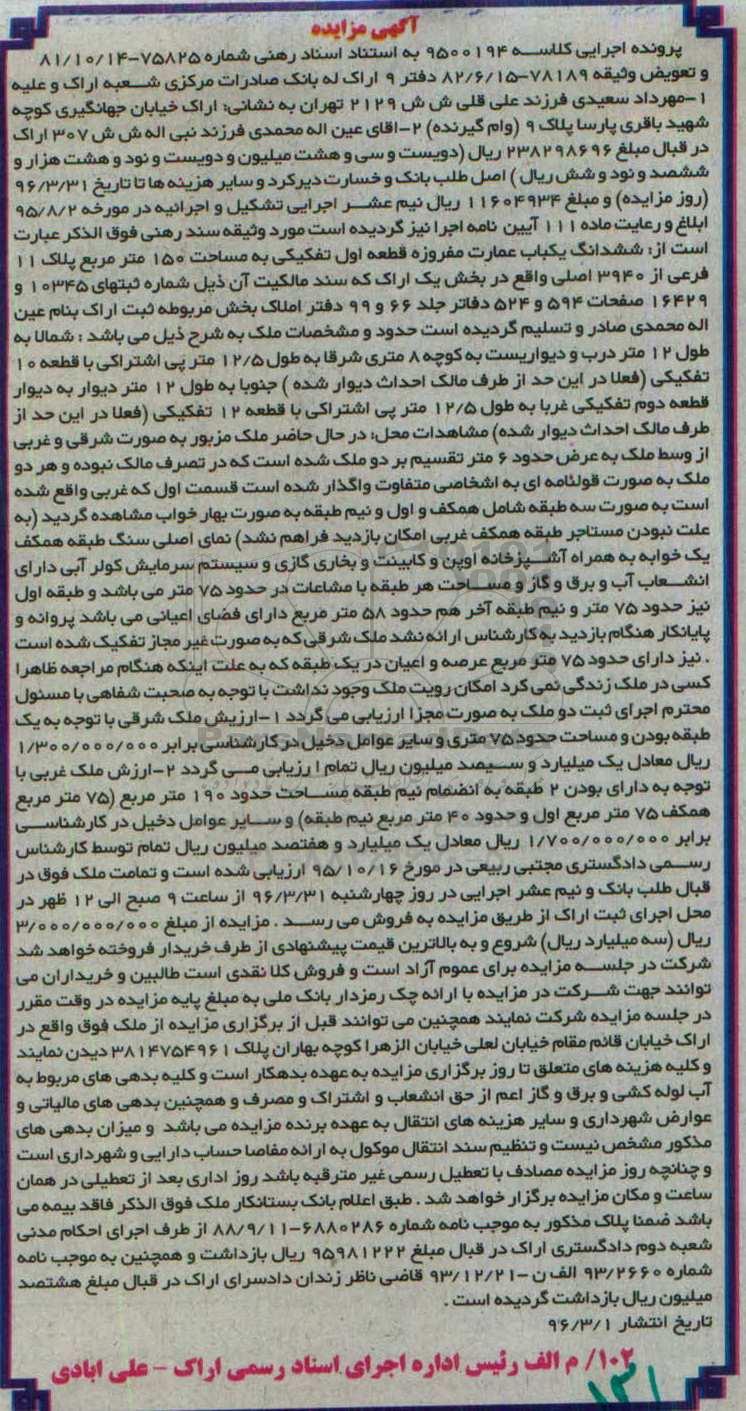 آگهی مزایده
پرونده اجرایی کلاسه ۹۵۰۰۱۹۴ به استناد اسناد رهنی شماره ۷۵۸۲۵-۸۱/۱۰/۱۴
و تعویض وثیقه ۷۸۱۸۹-۸۲/۶/۱۵ دفتر ۹ اراک له بانک صادرات مرکزی شعبه اراک و علیه
۱-مهرداد سعیدی فرزند علی قلی ش ش ۲۱۲۹ تهران به نشانی: اراک خیابان جهانگیری کوچه
شهید باقری پارسا پلاک ۹ (وام گیرنده) ۲-اقای عین اله محمدی فرزند نبی اله ش ش ۳۰۷ اراک
در قبال مبلغ ۲۳۸۲۹۸۶۹۶ ریال (دویست و سی و هشت میلیون و دویست و نود و هشت هزار و
ششصد و نود و شش ریال) اصل طلب بانک و خسارت دیرکرد و سایر هزینه ها تا تاریخ ۹۶/۳/۳۱
(روز مزایده) و مبلغ ۱۱۶۰۴۹۳۴ ریال نیم عشر اجرایی تشکیل و اجرائیه در مورخه ۹۵/۸/۲
ابلاغ و رعایت ماده ۱۱۱ آیین نامه اجرا نیز گردیده است مورد وثیقه سند رهنی فوق الذکر عبارت
است از: ششدانگ یکباب عمارت مفروزه قطعه اول تفکیکی به مساحت ۱۵۰ متر مربع پلاک ۱۱
فرعی از ۳۹۴۰ اصلی واقع در بخش یک اراک که سند مالکیت آن ذیل شماره ثبتهای ۱۰۳۴۵ و
۱۶۴۲۹ صفحات ۵۹۴ و ۵۲۴ دفاتر جلد ۶۶ و ۹۹ دفتر املاک بخش مربوطه ثبت اراک بنام عین
اله محمدی صادر و تسلیم گردیده است حدود و مشخصات ملک به شرح ذیل می باشد : شمالا به
طول ۱۲ متر درب و دیواریست به کوچه ۸ متری شرقا به طول ۱۲/۵ متر پی اشتراکی با قطعه ۱۰
تفکیکی (فعلا در این حد از طرف مالک احداث دیوار شده ) جنوبا به طول ۱۲ متر دیوار به دیوار
قطعه دوم تفکیکی غربا به طول ۱۲/۵ متر پی اشتراکی با قطعه ۱۲ تفکیکی (فعلا در این حد از
طرف مالک احداث دیوار شده) مشاهدات محل: در حال حاضر ملک مزبور به صورت شرقی و غربی
از وسط ملک به عرض حدود ۶ متر تقسیم بر دو ملک شده است که در تصرف مالک نبوده و هر دو
ملک به صورت قولنامه ای به اشخاصی متفاوت واگذار شده است قسمت اول که غربی واقع شده
است به صورت سه طبقه شامل همکف و اول و نیم طبقه به صورت بهار خواب مشاهده گردید (به
علت نبودن مستاجر طبقه همکف غربی امکان بازدید فراهم نشد) نمای اصلی سنگ طبقه همکف
یک خوابه به همراه آشپزخانه اوپن و کابینت و بخاری گازی و سیستم سرمایش کولر آبی دارای
انشعاب آب و برق و گاز و مساحت هر طبقه با مشاعات در حدود ۷۵ متر می باشد و طبقه اول
نیز حدود ۷۵ متر و نیم طبقه آخر هم حدود ۵۸ متر مربع دارای فضای اعیانی می باشد پروانه و
پایانکار هنگام بازدید به کارشناس ارائه نشد ملک شرقی که به صورت غیر مجاز تفکیک شده است
. نیز دارای حدود ۷۵ متر مربع عرصه و اعیان در یک طبقه که به علت اینکه هنگام مراجعه ظاهرا
کسی در ملک زندگی نمی کرد امکان رویت ملک وجود نداشت با توجه به صحبت شفاهی با مسئول
محترم اجرای ثبت دو ملک به صورت مجزا ارزیابی می گردد ۱-ارزیش ملک شرقی با توجه به یک
طبقه بودن و مساحت حدود ۷۵ متری و سایر عوامل دخیل در کارشناسی برابر ۱/۳۰۰/۰۰۰/۰۰۰
ریال معادل یک میلیارد و سیصد میلیون ریال تمام ا رزیابی می گردد ۲-ارزش ملک غربی با
توجه به دارای بودن ۲ طبقه به انضمام نیم طبقه مساحت حدود ۱۹۰ متر مربع (۷۵ متر مربع
همکف ۷۵ متر مربع اول و حدود ۴۰ متر مربع نیم طبقه) و سایر عوامل دخیل در کارشناسی
برابر ۱/۷۰۰/۰۰۰/۰۰۰ ریال معادل یک میلیارد و هفتصد میلیون ریال تمام توسط کارشناس
رسمی دادگستری مجتبی ربیعی در مورخ ۹۵/۱۰/۱۶ ارزیابی شده است و تمامت ملک فوق در
قبال طلب بانک و نیم عشر اجرایی در روز چهارشنبه ۹۶/۳/۳۱ از ساعت ۹ صبح الی ۱۲ ظهر در
محل اجرای ثبت اراک از طریق مزایده به فروش می رسد . مزایده از مبلغ ۳/۰۰۰/۰۰۰/۰۰۰
ریال (سه میلیارد ریال) شروع و به بالاترین قیمت پیشنهادی از طرف خریدار فروخته خواهد شد
شرکت در جلسه مزایده برای عموم آزاد است و فروش کلا نقدی است طالبین و خریداران می
توانند جهت شرکت در مزایده با ارائه چک رمزدار بانک ملی به مبلغ پایه مزایده در وقت مقرر
در جلسه مزایده شرکت نمایند همچنین می توانند قبل از برگزاری مزایده از ملک فوق واقع در
اراک خیابان قائم مقام خیابان لعلی خیابان الزهرا کوچه بهاران پلاک ۳۸۱۴۷۵۴۹۶۱ دیدن نمایند
و کلیه هزینه های متعلق تا روز برگزاری مزایده به عهده بدهکار است و کلیه بدهی های مربوط به
آب لوله کشی و برق و گاز اعم از حق انشعاب و اشتراک و مصرف و همچنین بدهی های مالیاتی و
عوارض شهرداری و سایر هزینه های انتقال به عهده برنده مزایده می باشد و میزان بدهی های
مذکور مشخص نیست و تنظیم سند انتقال موکول به ارائه مفاصا حساب دارایی و شهرداری است
و چنانچه روز مزایده مصادف با تعطیل رسمی غیر مترقبه باشد روز اداری بعد از تعطیلی در همان
ساعت و مکان مزایده برگزار خواهد شد . طبق اعلام بانک بستانکار ملک فوق الذکر فاقد بیمه می
باشد ضمنا پلاک مذکور به موجب نامه شماره ۶۸۸۰۲۸۶-۸۸/۹/۱۱ از طرف اجرای احکام مدنی
شعبه دوم دادگستری اراک در قبال مبلغ ۹۵۹۸۱۲۲۲ ریال بازداشت و همچنین به موجب نامه
شماره ۹۳/۲۶۶۰ الف ن-۹۳/۱۲/۲۱ قاضی ناظر زندان دادسرای اراک در قبال مبلغ هشتصد
میلیون ریال بازداشت گردیده است .
تاریخ انتشار ۹۶/۳/۱
۱۰۲/ م الف رئیس اداره اجرای اسناد رسمی اراک - علی ابادی
۱۳۱